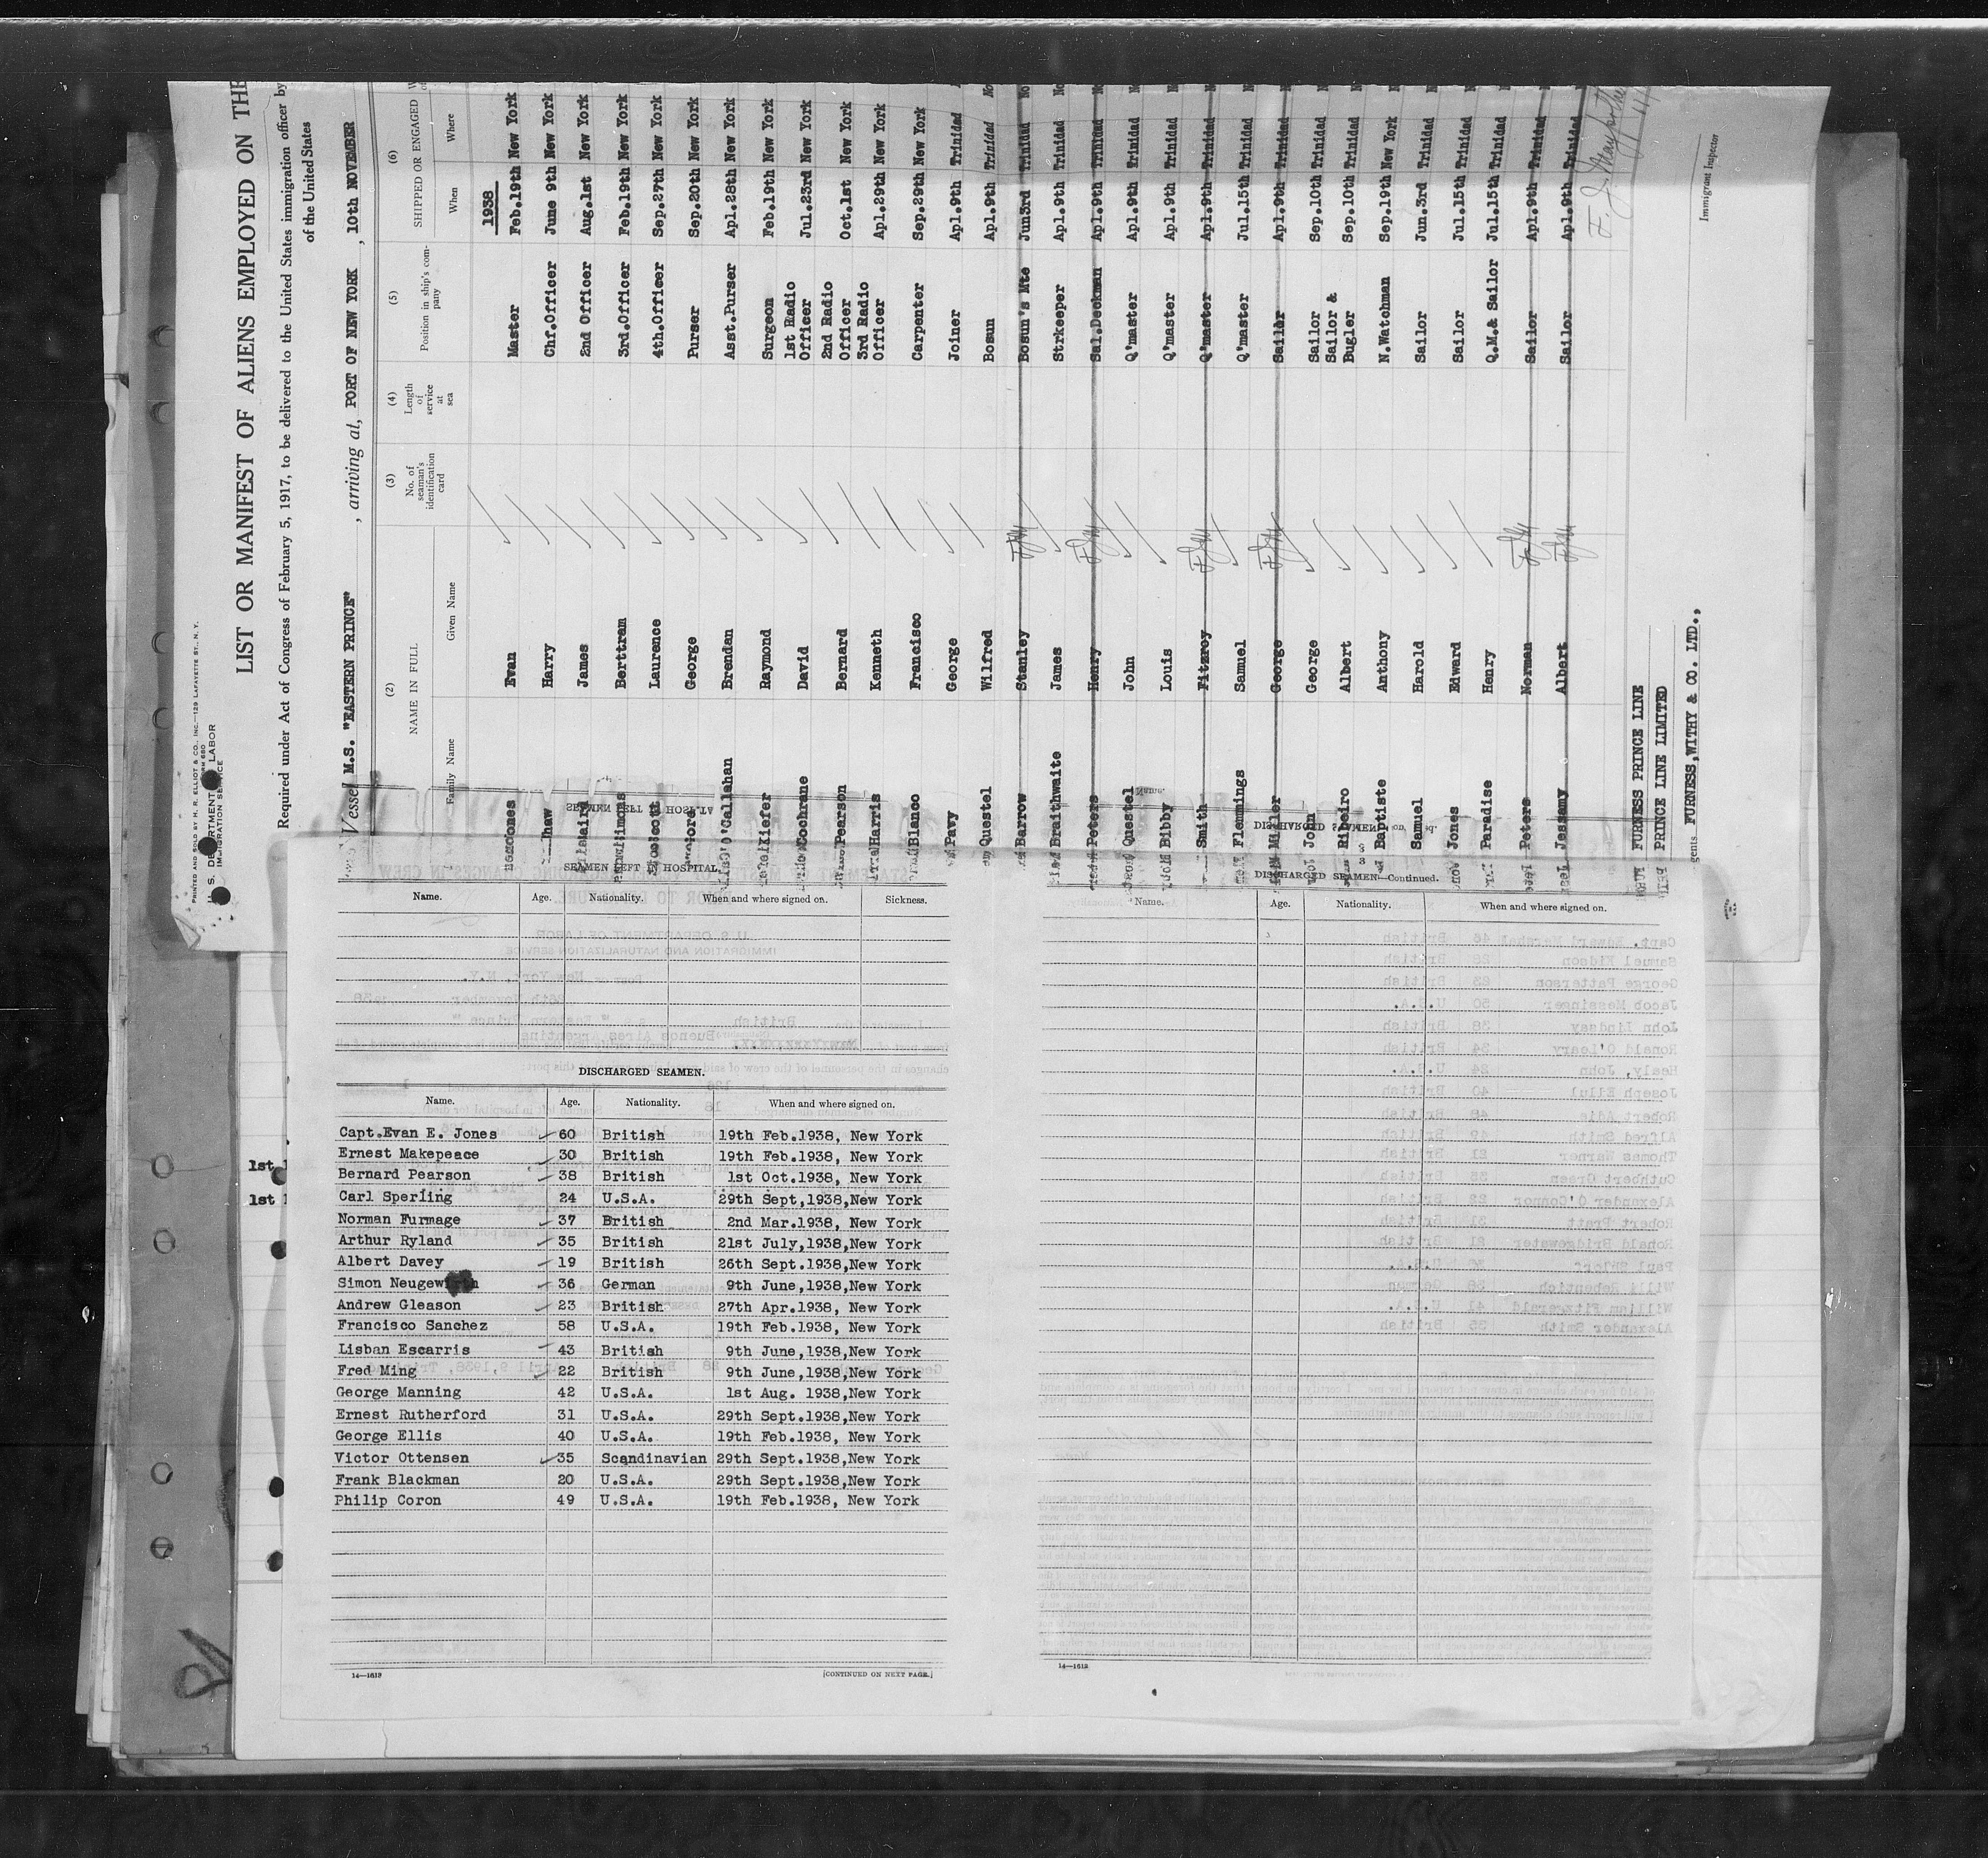 PRINTED AND SOLD BY H. R. ELLIOT & CO., INC.—129 LAFAYETTE ST., N. Y.
U. S. DEPARTMENT LABOR
IMMIGRATION SERVICE
LIST OR MANIFEST OF ALIENS EMPLOYED ON THE
Required under Act of Congress of February 5, 1917, to be delivered to the United States immigration officer by
of the United States
Vessel M.S. "EASTERN PRINCE", arriving at, PORT OF NEW YORK, 10th NOVEMBER
(2) (3) (4) (5) (6)
NAME IN FULL No. of seaman's identification card Length of service at sea Position in ship's company SHIPPED OR ENGAGED
Family Name Given Name When Where
1938
Jones Evan Master Feb.19th New York
haw Harry Chf.Officer June 9th New York
Mair James 2nd Officer Aug.1st New York
Berttram 3rd.Officer Feb.19th New York
Scott Laurence 4th.Officer Sep.27th New York
George Purser Sep.20th New York
O'Callahan Brendan Asst.Purser Apl.28th New York
Kiefer Raymond Surgeon Feb.19th New York
Cochrane David 1st Radio Officer Jul.23rd New York
Pearson Bernard 2nd Radio Officer Oct.1st New York
Harris Kenneth 3rd Radio Officer Apl.29th New York
Blanco Francisco Carpenter Sep.29th New York
Pavy George Joiner Apl.9th Trinidad
Questel Wilfred Bosun Apl.9th Trinidad No
Barrow Stanley Bosun's Mte Jun3rd Trinidad No
Braithwaite James Strkeeper Apl.9th Trinidad No
Peters Henry Sal.Deckman Apl.9th Trinidad N
Questel John Q'master Apl.9th Trinidad N
Bibby Louis Q'master Apl.9th Trinidad N
Smith Fitzroy Q'master Apl.9th Trinidad N
Flemmings Samuel Q'master Jul.15th Trinidad N
Miller George Sailor Apl.9th Trinidad N
John George Sailor Sep.10th Trinidad N
Ribeiro Albert Sailor & Bugler Sep.10th Trinidad N
Baptiste Anthony N.Watchman Sep.19th New York
Samuel Harold Sailor Jun.3rd Trinidad N
Jones Edward Sailor Jul.15th Trinidad N
Paradise Henry Q.M.& Sailor Jul.15th Trinidad N
Peters Norman Sailor Apl.9th Trinidad
Jessamy Albert Sailor Apl.9th Trinidad
Immigrant Inspector
FURNESS PRINCE LINE
PRINCE LINE LIMITED
gents FURNESS,WITHY & CO. LTD.,
1st
1st
SEAMEN LEFT IN HOSPITAL.
Name. Age. Nationality. When and where signed on. Sickness.
DISCHARGED SEAMEN.
Name. Age. Nationality. When and where signed on.
Capt.Evan E. Jones 60 British 19th Feb.1938, New York
Ernest Makepeace 30 British 19th Feb.1938, New York
Bernard Pearson 38 British 1st Oct.1938, New York
Carl Sperling 24 U.S.A. 29th Sept,1938,New York
Norman Furmage 37 British 2nd Mar.1938, New York
Arthur Ryland 35 British 21st July,1938,New York
Albert Davey 19 British 26th Sept.1938,New York
Simon Neugewirth 36 German 9th June,1938,New York
Andrew Gleason 23 British 27th Apr.1938, New York
Francisco Sanchez 58 U.S.A. 19th Feb.1938, New York
Lisban Escarris 43 British 9th June,1938,New York
Fred Ming 22 British 9th June,1938,New York
George Manning 42 U.S.A. 1st Aug. 1938,New York
Ernest Rutherford 31 U.S.A. 29th Sept.1938,New York
George Ellis 40 U.S.A. 19th Feb.1938, New York
Victor Ottensen 35 Scandinavian 29th Sept.1938,New York
Frank Blackman 20 U.S.A. 29th Sept.1938,New York
Philip Coron 49 U.S.A. 19th Feb.1938, New York
14—1613 [CONTINUED ON NEXT PAGE.]
DISCHARGED SEAMEN—Continued.
Name. Age. Nationality. When and where signed on.
14—1613